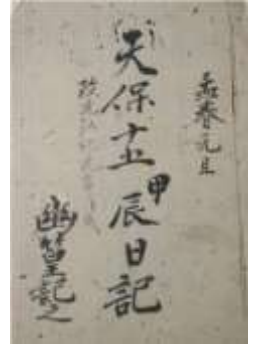 孟春元旦
天保十五甲辰日記
幽篁記之